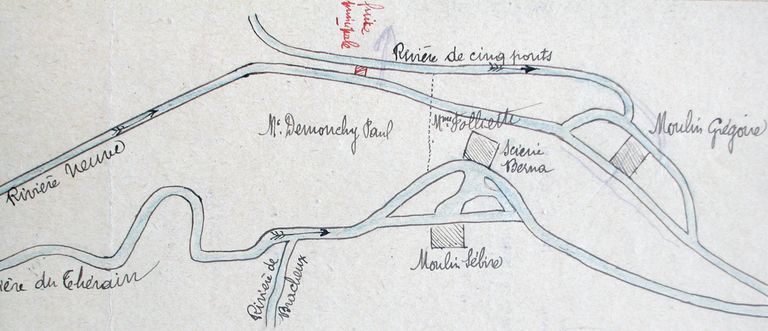 fuite
principale
Rivière de cinq ponts
Mr. Demonchy Paul
Mme Folliette
Moulin Grégoire
Scierie
Berna
Rivière Neuve
ière du Thérain
Rivière de
Bracheux
Moulin Sébire